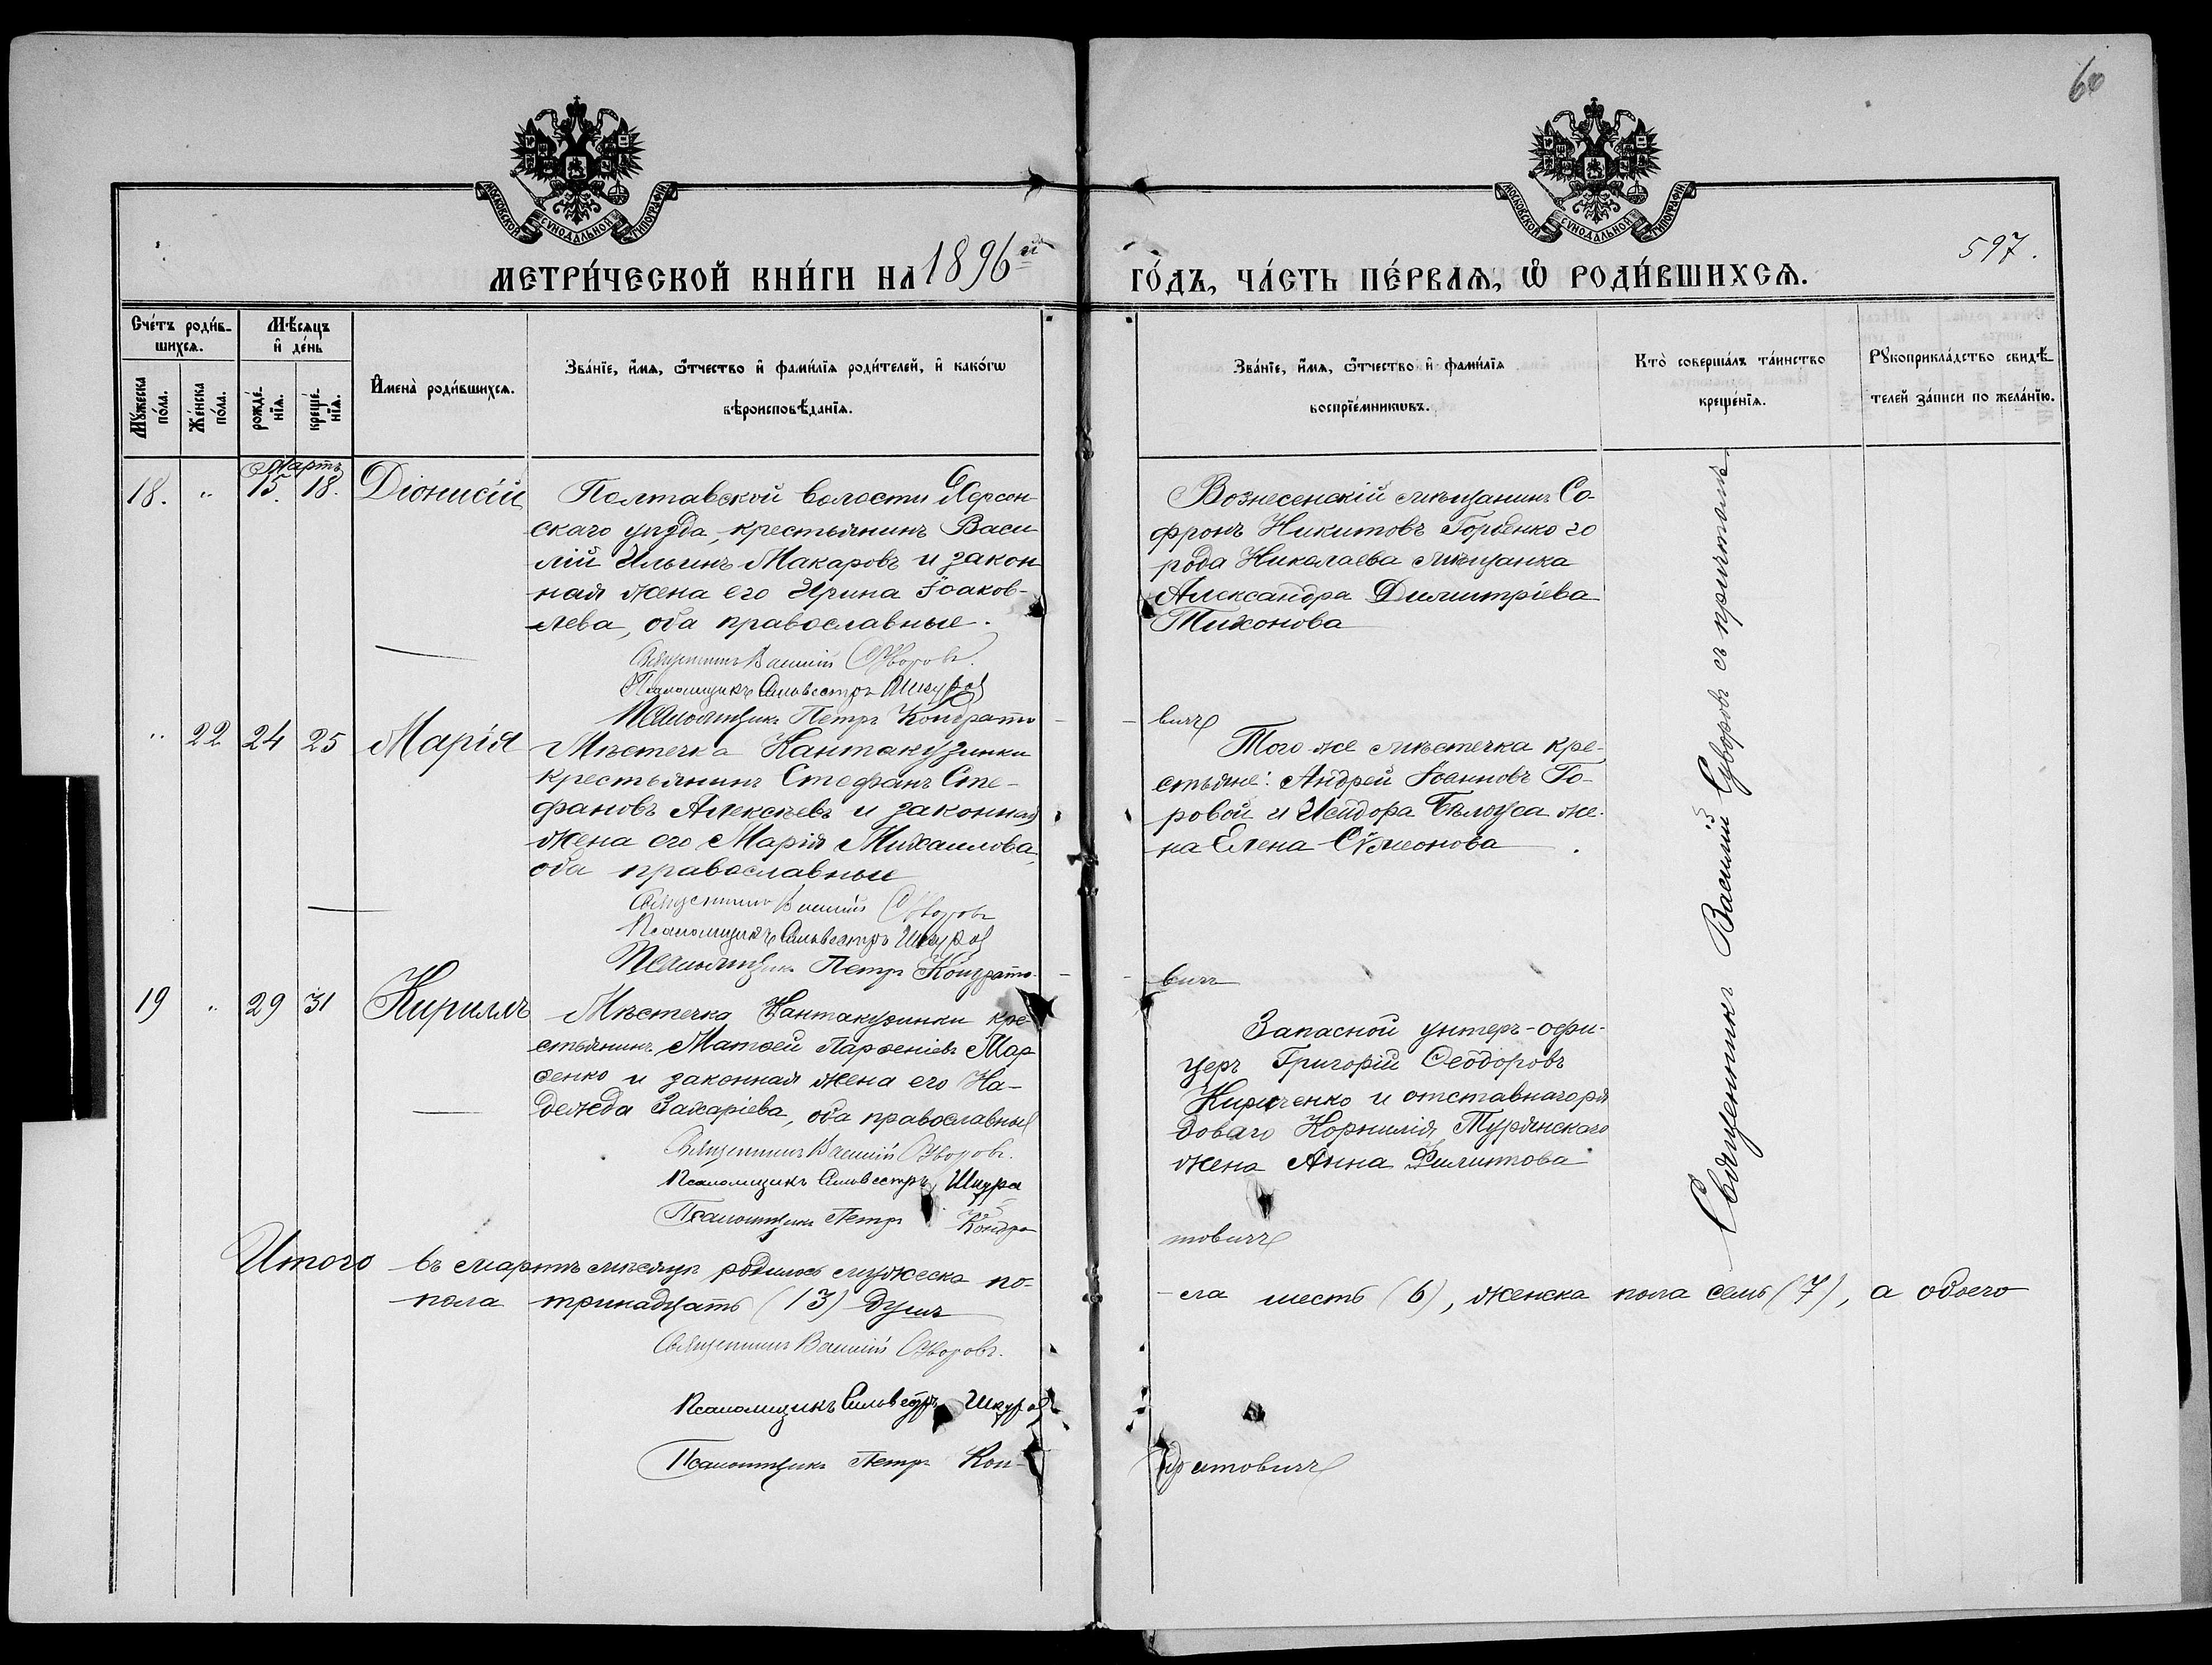 60
МОСКОВСКОЙ СѴНОДАЛЬНОЙ ТИПОГРАФІИ
МОСКОВСКОЙ СѴНОДАЛЬНОЙ ТИПОГРАФІИ
597.
МЕТРИ́ЧЕСКОЙ КНИ́ГИ НА 1896й ГО́ДЪ, ЧА́СТЬ ПЕ́РВАѦ, Ѡ҆ РОДИ́ВШИХСѦ.
Сче́тъ роди́в-
шихсѧ.
Мꙋ́жеска
по́ла.
Же́нска
по́ла.
Мѣ́сѧцъ
и҆ де́нь
рожде́-
нїѧ.
креще́-
нїѧ.
И҆мена̀ роди́вшихсѧ.
Зва́нїе, и҆́мѧ, ѻ҆́тчество и҆ фами́лїѧ роди́телей, и҆ како́гѡ
вѣроисповѣ́данїѧ.
Зва́нїе, и҆́мѧ, ѻ҆́тчество и҆ фами́лїѧ
воспрїе́мникѡвъ.
Кто̀ соверша́лъ та́инство
креще́нїѧ.
Рꙋкоприкла́дство свидѣ́-
телей за́писи по жела́нїю.
Мартъ
18. " 15. 18. Діонисій
Полтавской волости Херсон-
скаго уѣзда, крестьянинъ Васи
лій Ильинъ Макаровъ и закон
ная жена его Ирина Іоаков-
лева, оба православные.
Священникъ Василій Суворовъ.
Псаломщикъ Сильвестръ Шкура
Псаломщикъ Петръ Кондрато-
Вознесенскій мѣщанинъ Со-
фронъ Никитовъ Горбенко го
рода Николаева мѣщанка
Александра Димитріева
Тихонова
вичъ
" 22 24 25 Марія
Мѣстечка Кантакузинки
крестьянинъ Стефанъ Сте-
фановъ Алексѣевъ и законная
жена его Марія Михаилова,
оба православные
Священникъ Василій Суворовъ
Псаломщикъ Сильвестръ Шкура
Псаломщикъ Петръ Кондрато-
Того же мѣстечка кре-
стьяне: Андрей Іоанновъ Го-
ровой и Исидора Бѣлоуса же-
на Елена Сѵмеонова.
вичъ
19 " 29 31 Кириллъ
Мѣстечка Кантакузинки кре-
стьянинъ Матѳей Парѳеніевъ Мар
ѳенко и законная жена его На-
дежда Захаріева, оба православные
Священникъ Василій Суворовъ.
Псаломщикъ Сильвестръ Шкура
Псаломщикъ Петръ Кондра-
Запасной унтеръ-офи-
церъ Григорій Ѳеодоровъ
Кириченко и отставнаго ря
доваго Корнилія Турянскаго
жена Анна Филиппова
товичъ
Священникъ Василій Суворовъ съ причтомъ
Итого въ мартѣ мѣсяцѣ родилось мужеска по-
-ла шесть (6), женска пола семь (7), а обоего
пола тринадцать (13) душъ
Священникъ Василій Суворовъ.
Псаломщикъ Сильвестръ Шкура
Псаломщикъ Петръ Кон-
дратовичъ